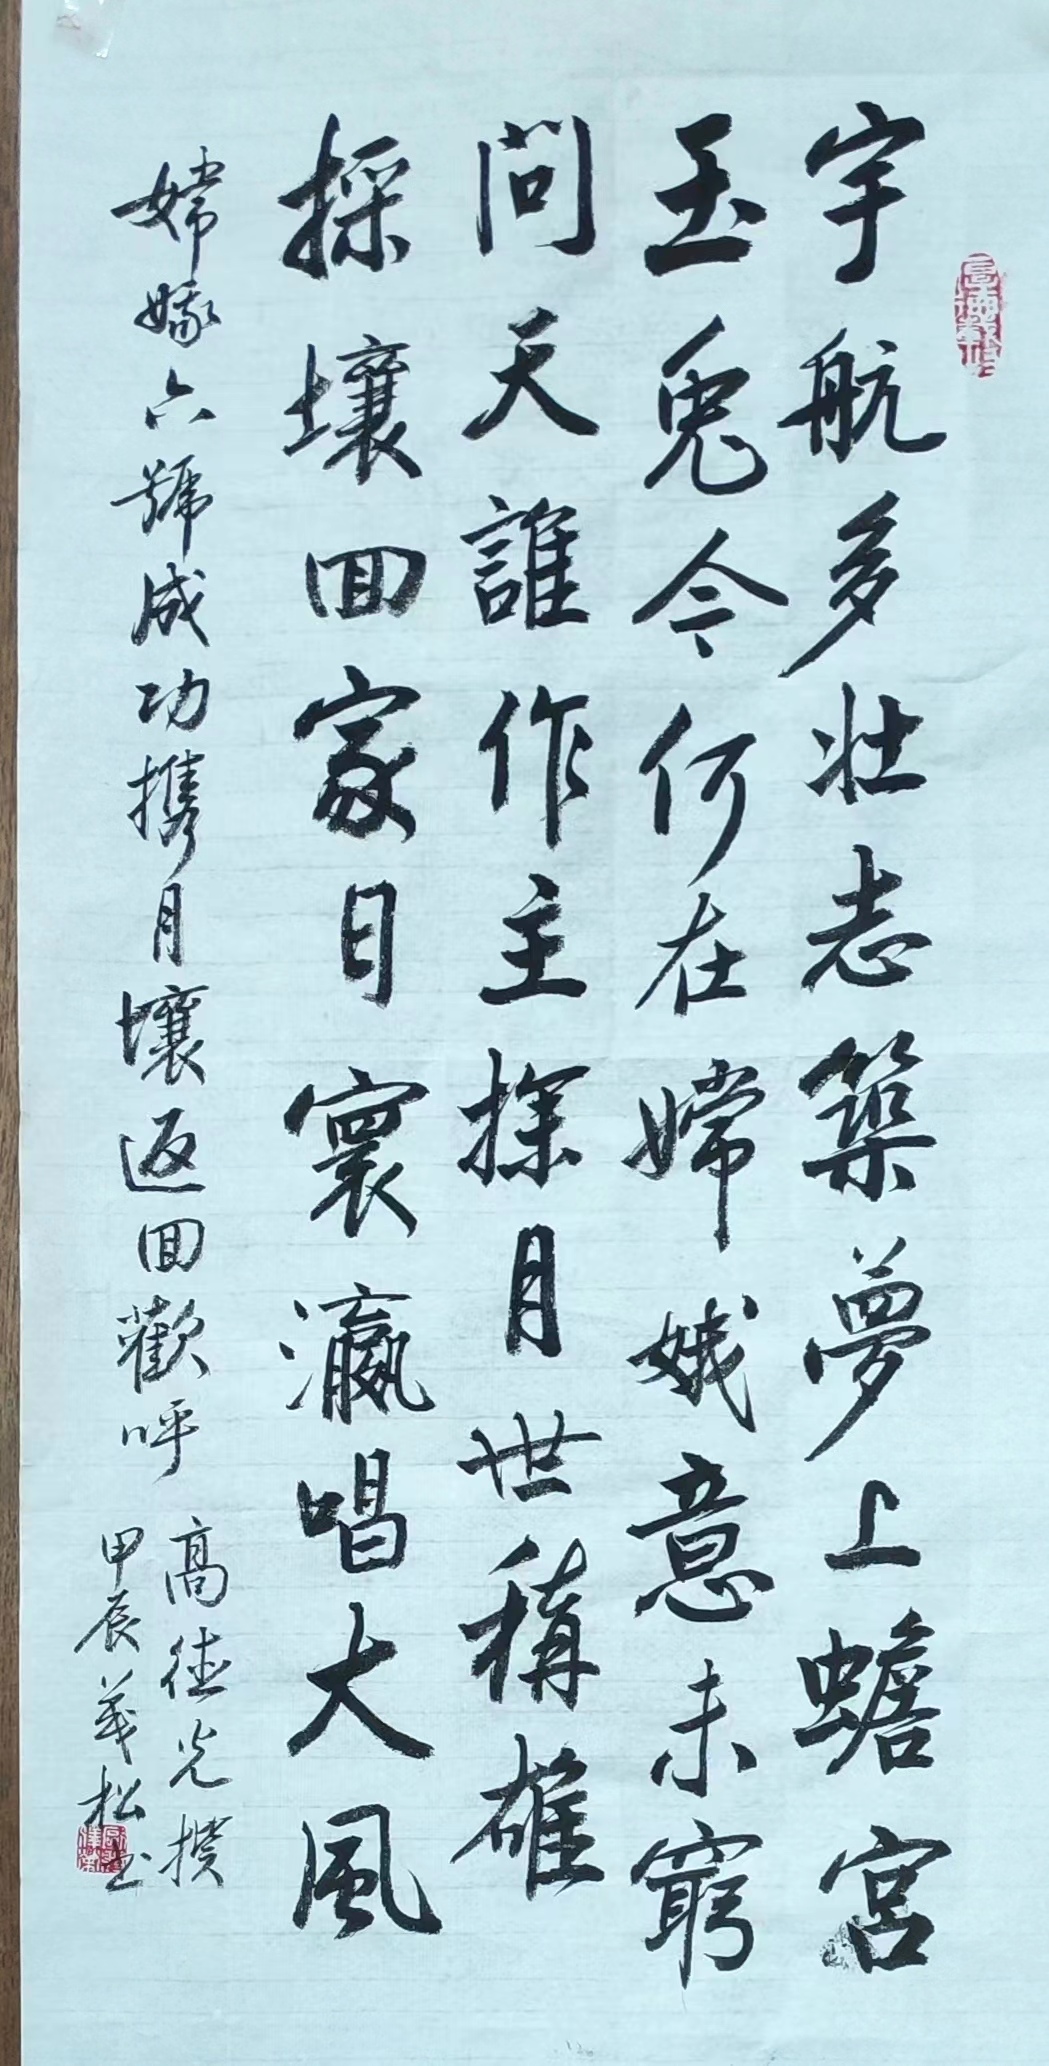 宇航多壯志築夢上蟾宮
玉兔今何在嫦娥意未窮
問天誰作主探月世稱雄
採壤回家日寰瀛唱大風
嫦娥六號成功携月壤返回歡呼
高德光撰
甲辰義松書